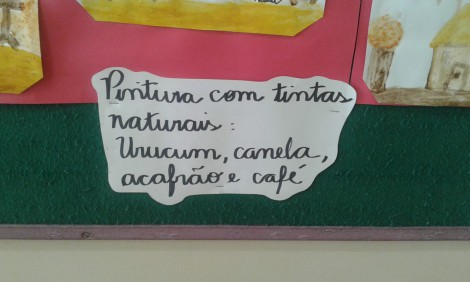 Pintura com tintas
naturais:
Urucum, canela,
acafrão e café